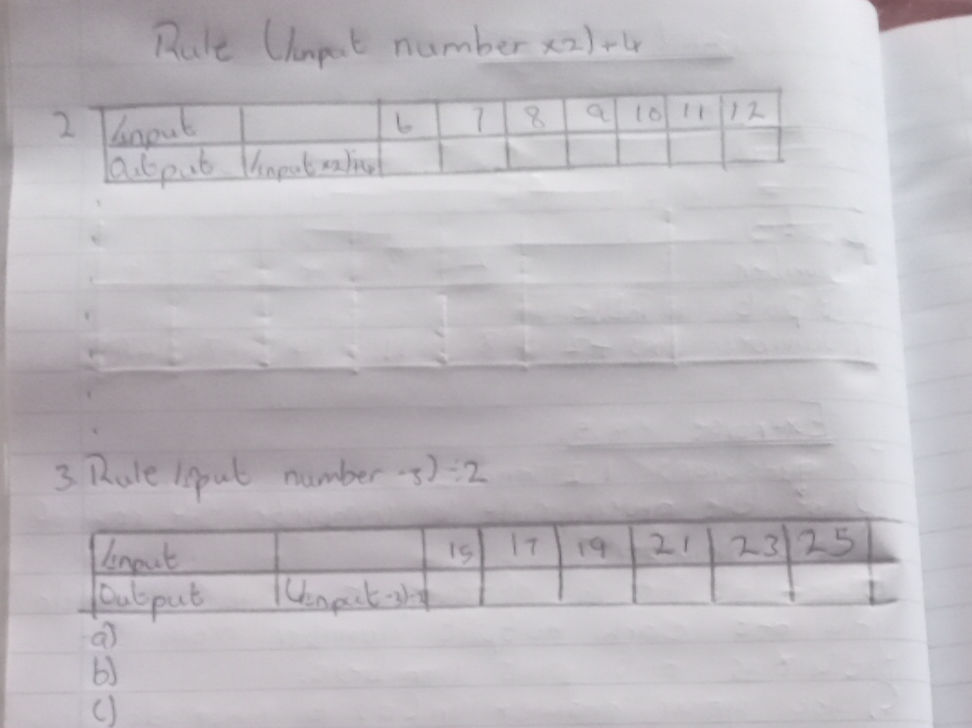 Rule (Input number x2)+4
2 Input 6 7 8 9 10 11 12
Output (Input x2)+4
3 Rule Input number -3)÷2
Input 15 17 19 21 23 25
Output (Input -3)÷2
a)
b)
c)